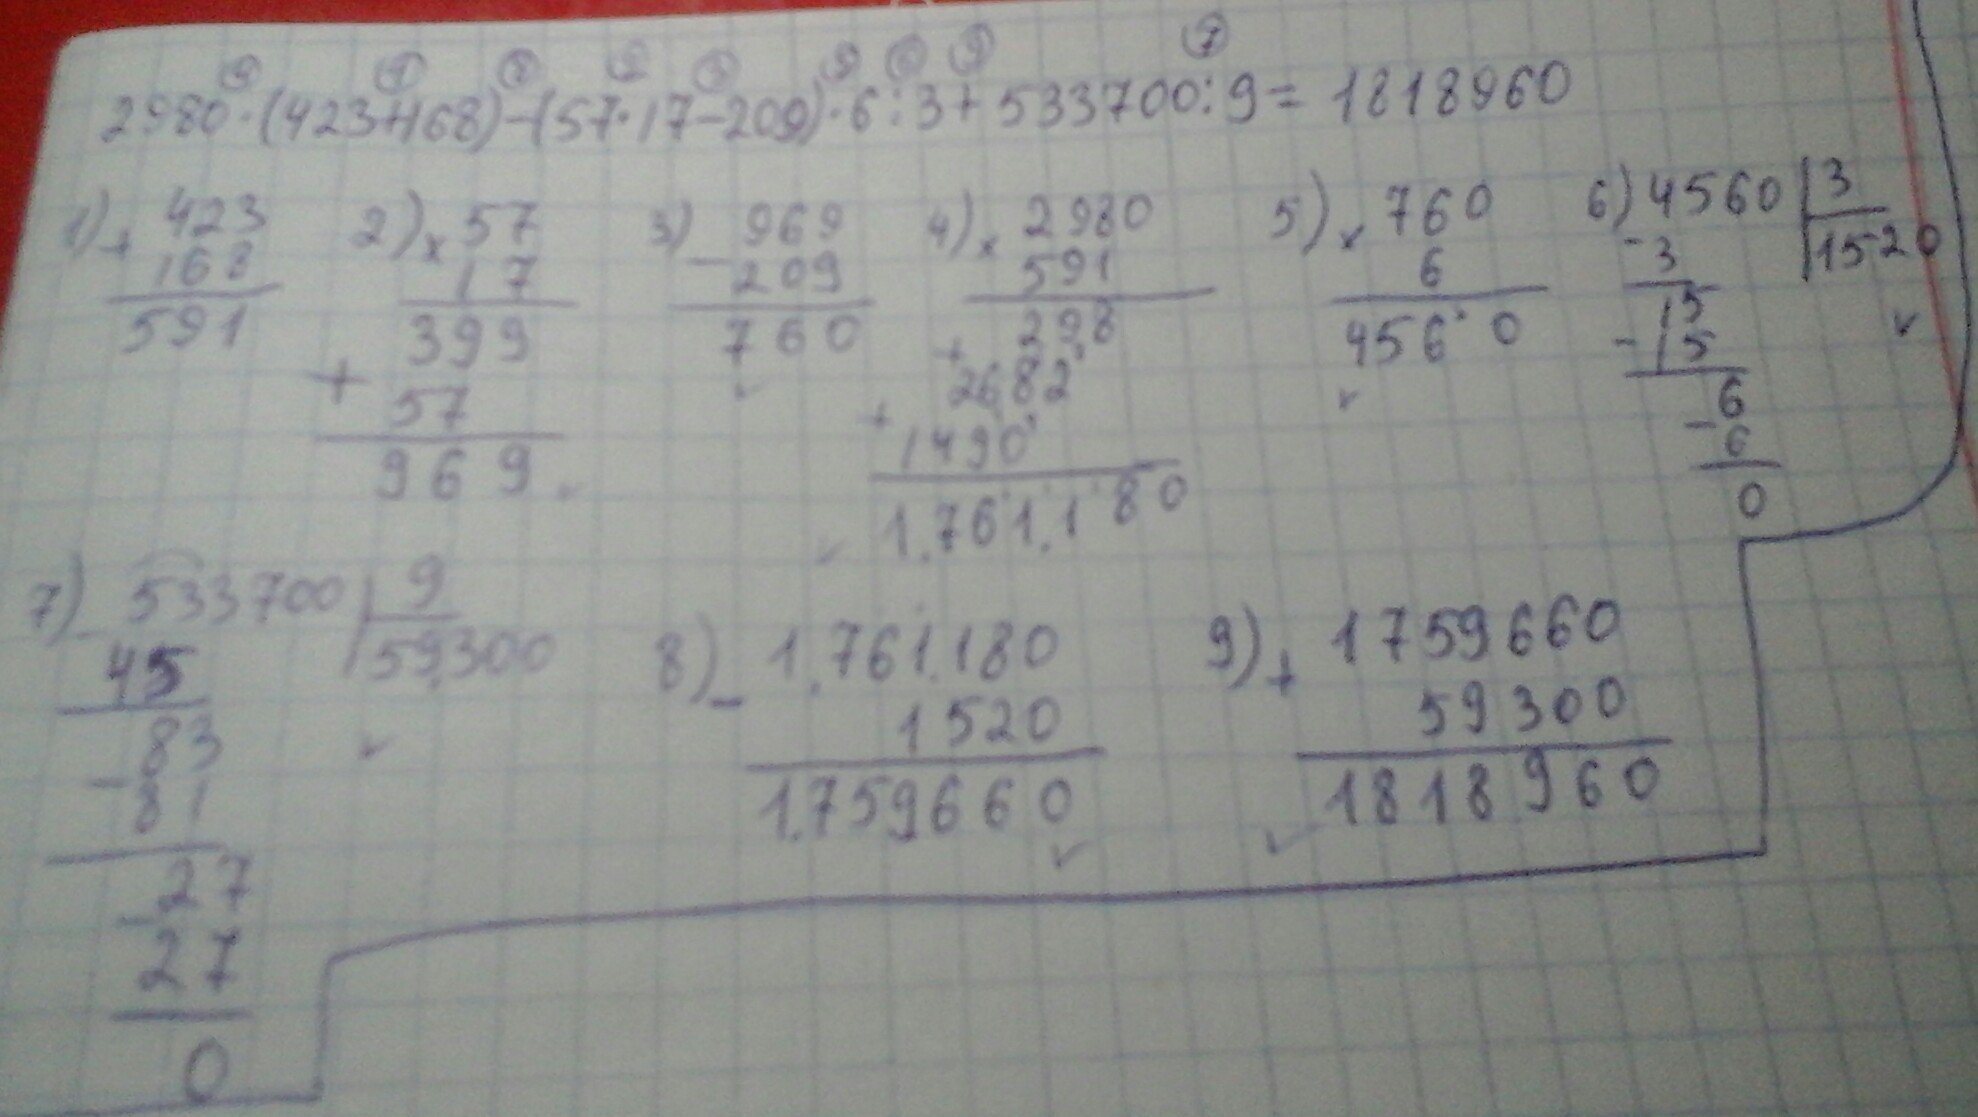 2980·(423+168)-(57·17-209)·6:3+533700:9=1818960
1) + 423
168
591
2) × 57
17
399
+ 57
969
3) - 969
209
760
4) × 2980
591
+ 298
+ 2682
1490
1.761.180
5) × 760
6
4560
6) 4560 | 3
1520
- 3
15
- 15
6
- 6
0
7) - 533700 | 9
59.300
45
83
- 81
27
- 27
0
8) - 1.761.180
1520
1.759660
9) + 1759660
59300
1818960